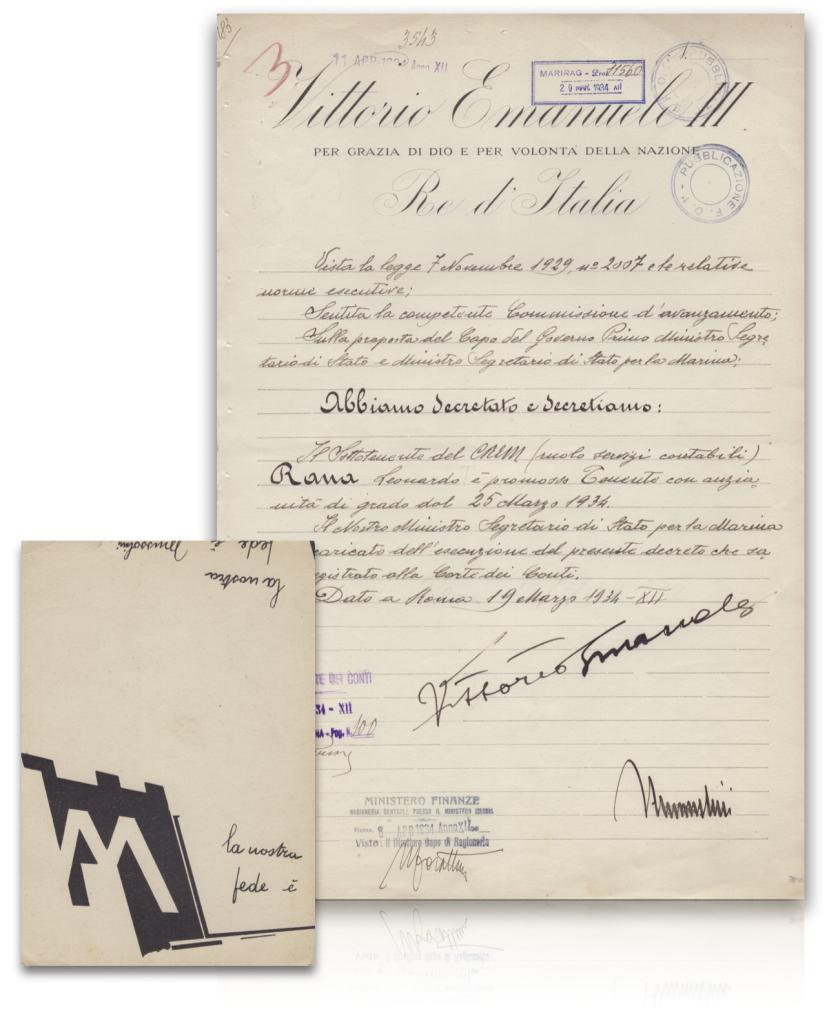 183
3543
3
11 APR. 1934 Anno XII
MARIRAG - Prot. 11560
29 MAR. 1934 XII
PUBBLI
PUBBLICAZIONE F. O. 1ª
Vittorio Emanuele III
PER GRAZIA DI DIO E PER VOLONTÀ DELLA NAZIONE
Re d'Italia
Vista la legge 7 Novembre 1929, nº 2007 e le relative
norme esecutive;
Sentita la competente Commissione d'avanzamento;
Sulla proposta del Capo del Governo Primo Ministro Segre-
tario di Stato e Ministro Segretario di Stato per la Marina;
Abbiamo decretato e decretiamo:
Il Sottotenente del CREM (ruolo servizi contabili)
Rana Leonardo è promosso Tenente con anzia-
nità di grado dal 25 Marzo 1934.
Il Nostro Ministro Segretario di Stato per la Marina
caricato dell'esecuzione del presente decreto che sa-
egistrato alla Corte dei Conti.
Dato a Roma 19 Marzo 1934 - XII
Vittorio Emanuele
Mussolini
TE DEI CONTI
34 - XII
NA - Fog. N. 100
MINISTERO FINANZE
RAGIONERIA CENTRALE PRESSO IL MINISTERO MARINA
Roma, 8 APR 1934 Anno XII
Visto: Il Direttore Capo di Ragioneria
la nostra
fede è
Mussolini
M
la nostra
fede è